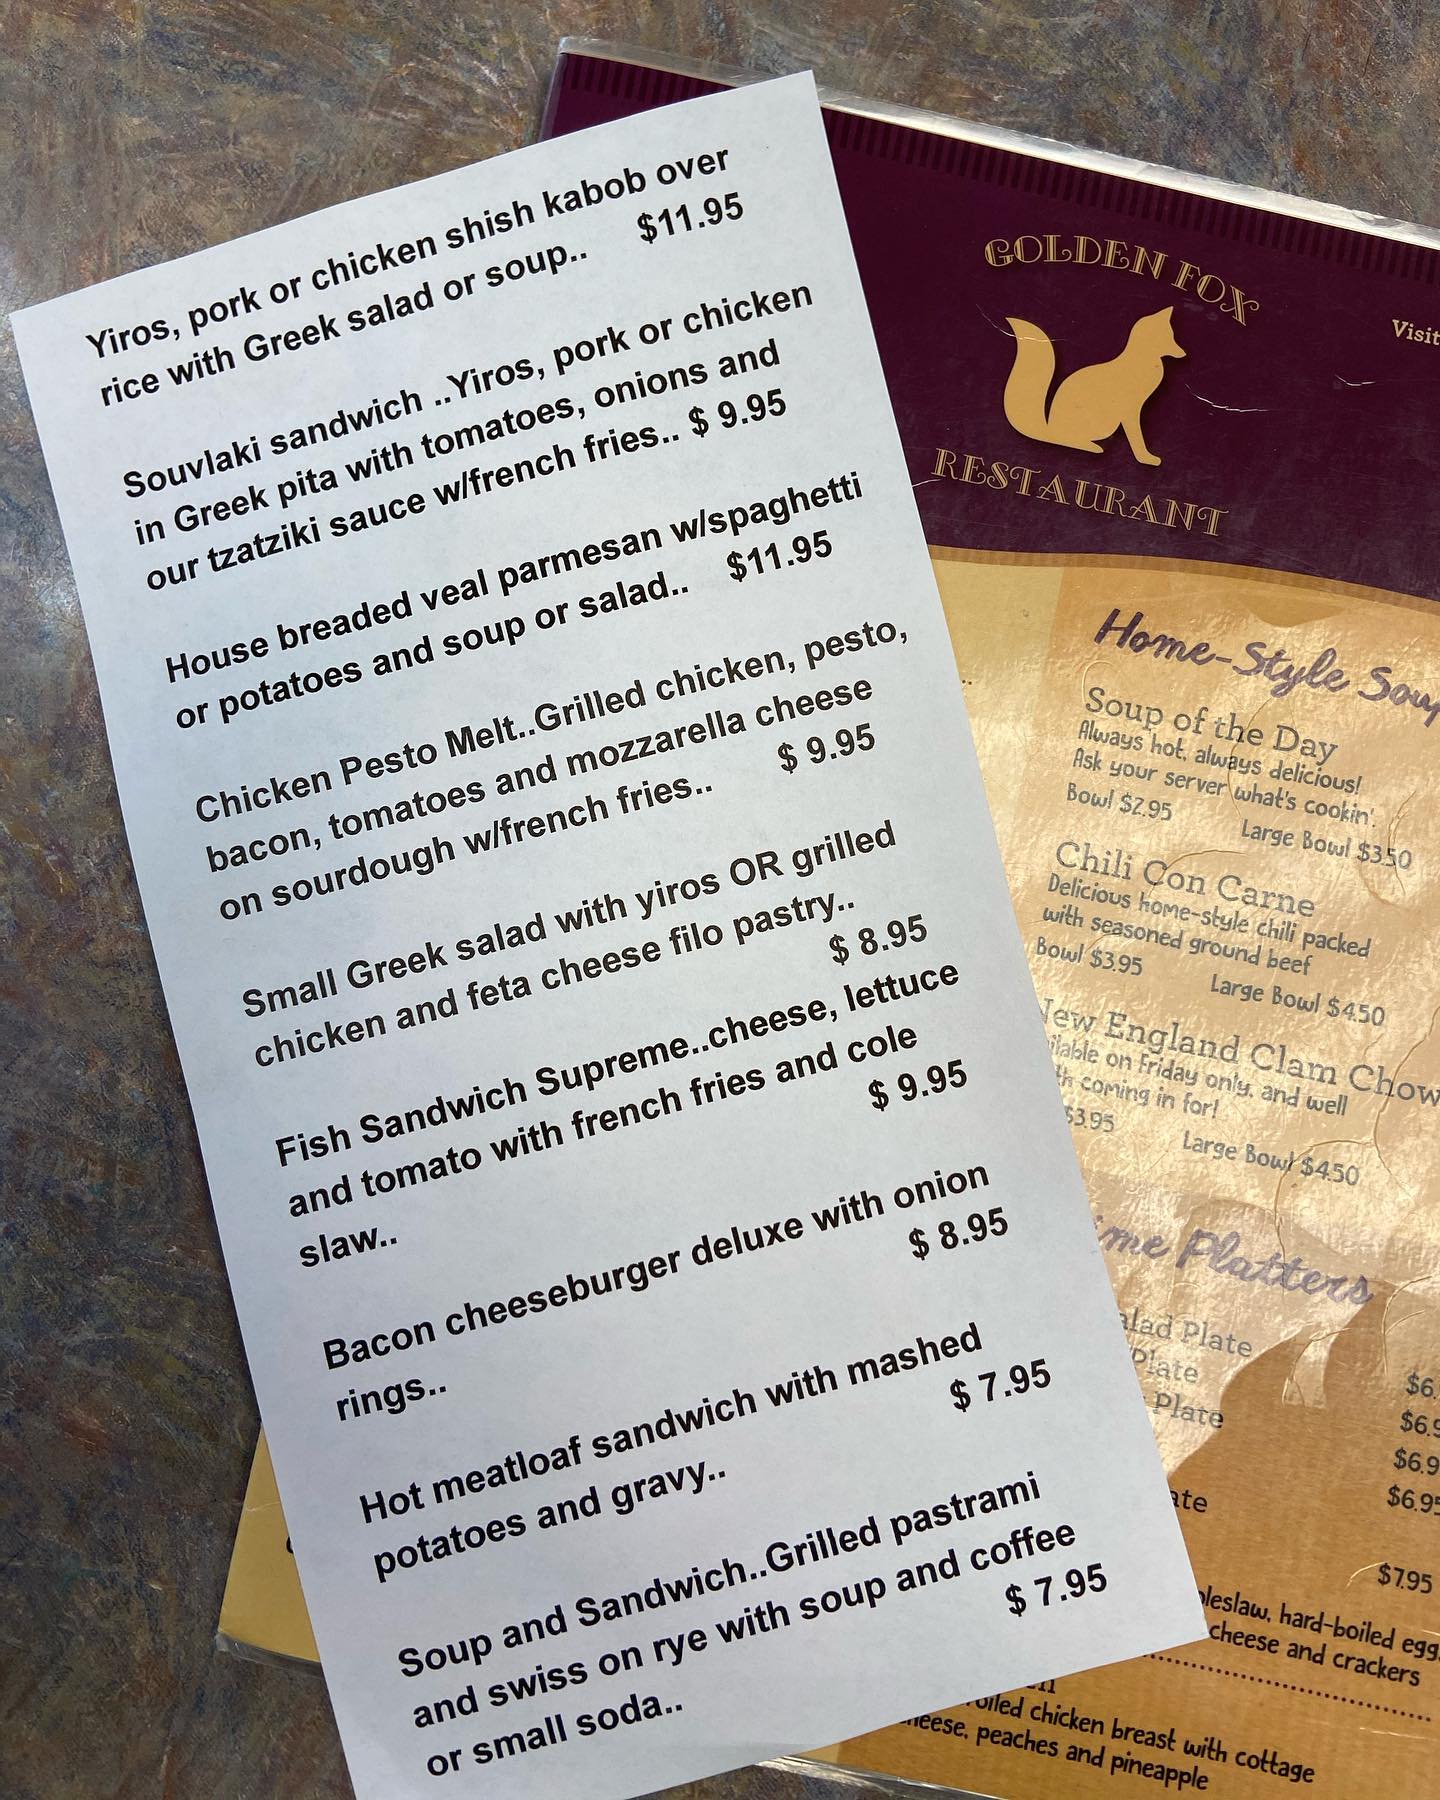 Yiros, pork or chicken shish kabob over
rice with Greek salad or soup.. $11.95
Souvlaki sandwich ..Yiros, pork or chicken
in Greek pita with tomatoes, onions and
our tzatziki sauce w/french fries.. $ 9.95
House breaded veal parmesan w/spaghetti
or potatoes and soup or salad.. $11.95
Chicken Pesto Melt..Grilled chicken, pesto,
bacon, tomatoes and mozzarella cheese
on sourdough w/french fries.. $ 9.95
Small Greek salad with yiros OR grilled
chicken and feta cheese filo pastry..
$ 8.95
Fish Sandwich Supreme..cheese, lettuce
and tomato with french fries and cole
slaw.. $ 9.95
Bacon cheeseburger deluxe with onion
rings.. $ 8.95
Hot meatloaf sandwich with mashed
potatoes and gravy.. $ 7.95
Soup and Sandwich..Grilled pastrami
and swiss on rye with soup and coffee
or small soda.. $ 7.95
GOLDEN FOX
RESTAURANT
Visit
Home-Style
Soup of the Day
Always hot, always delicious!
Ask your server what's cookin'.
Bowl $2.95 Large Bowl $3.50
Chili Con Carne
Delicious home-style chili packed
with seasoned ground beef
Bowl $3.95 Large Bowl $4.50
New England Clam
on Friday only, and well
coming in for!
$3.95 Large Bowl $4.50
Platters
Plate
Plate
Plate
$6.95
$7.95
hard-boiled egg,
cheese and crackers
chicken breast with cottage
cheese, peaches and pineapple